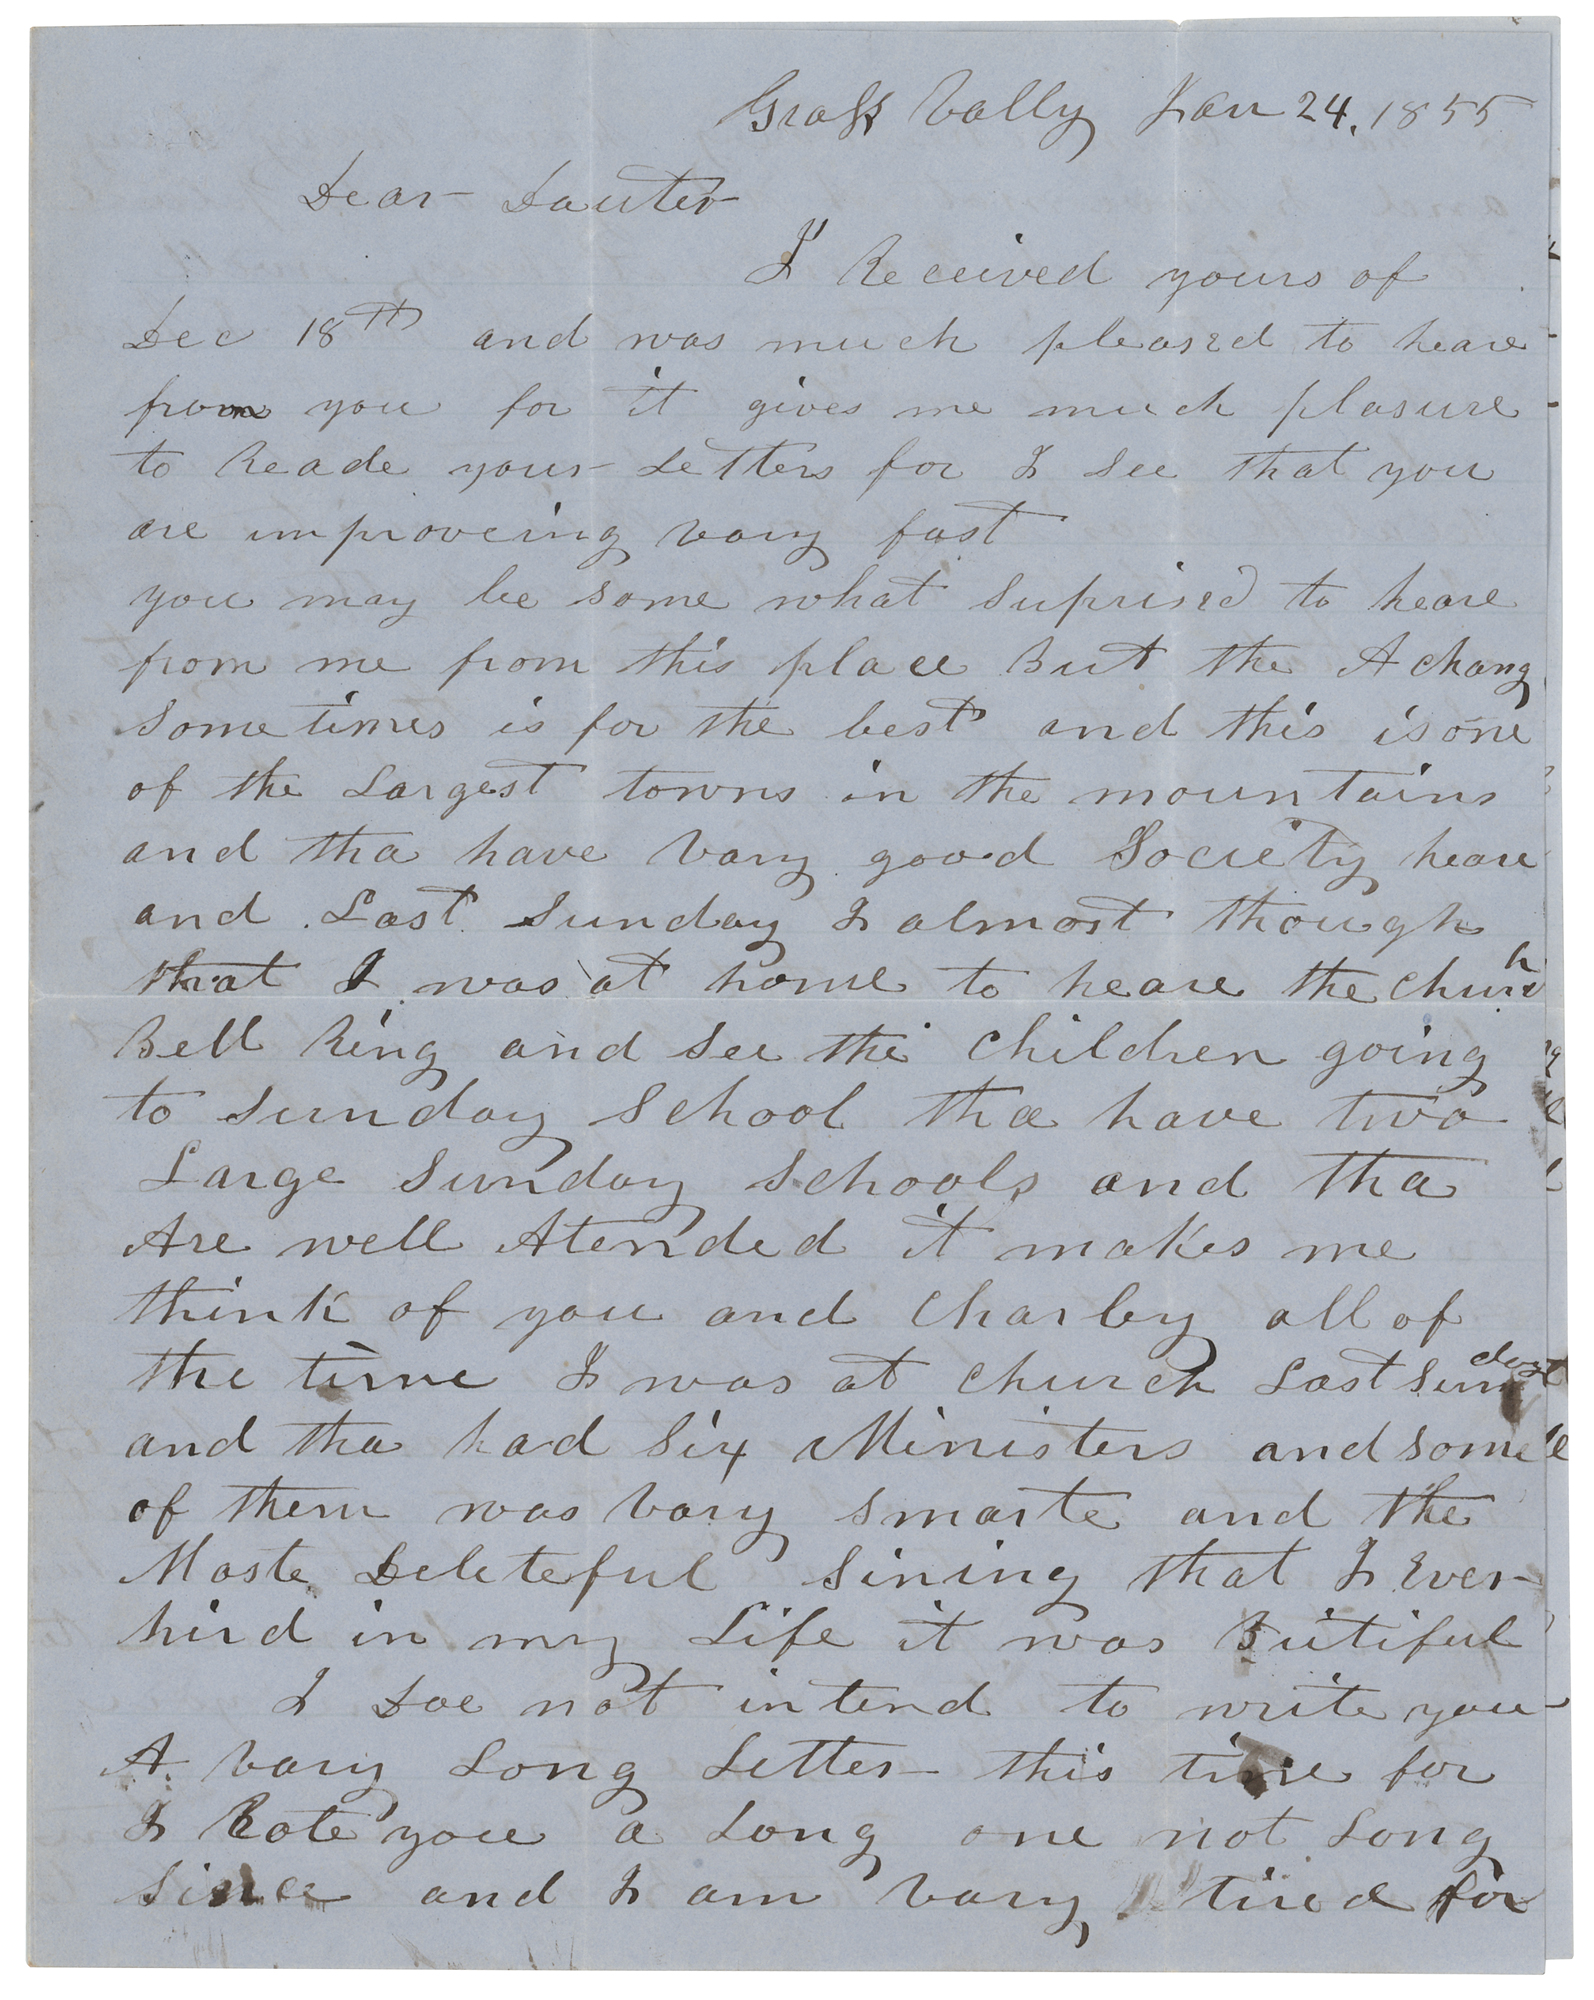 Grass Vally Jan 24, 1855
Dear Dauter
I Received yours of
Dec 18th and was much pleased to heare
from you for it gives me much plasure
to Reade your Letters for I see that you
are improveing vary fast
you may be some what suprised to heare
from me from this place But the A chang
some times is for the best and this is one
of the Largest towns in the mountains
and tha have vary good Society heare
and Last Sunday I almost though
that I was at home to heare the Church
Bell Ring and see the children going
to Sunday School tha have two
Large Sunday Schools and tha
Are well Atended it makes me
think of you and Charley all of
the time I was at church Last Sunday
and tha had Six Ministers and some
of them was vary smarte and the
Moste Deliteful Sining that I Ever
hird in my Life it was Butiful
I Doe not intend to write you
A vary Long Letter this time for
I Rote you a Long one not Long
since and I am vary tired for